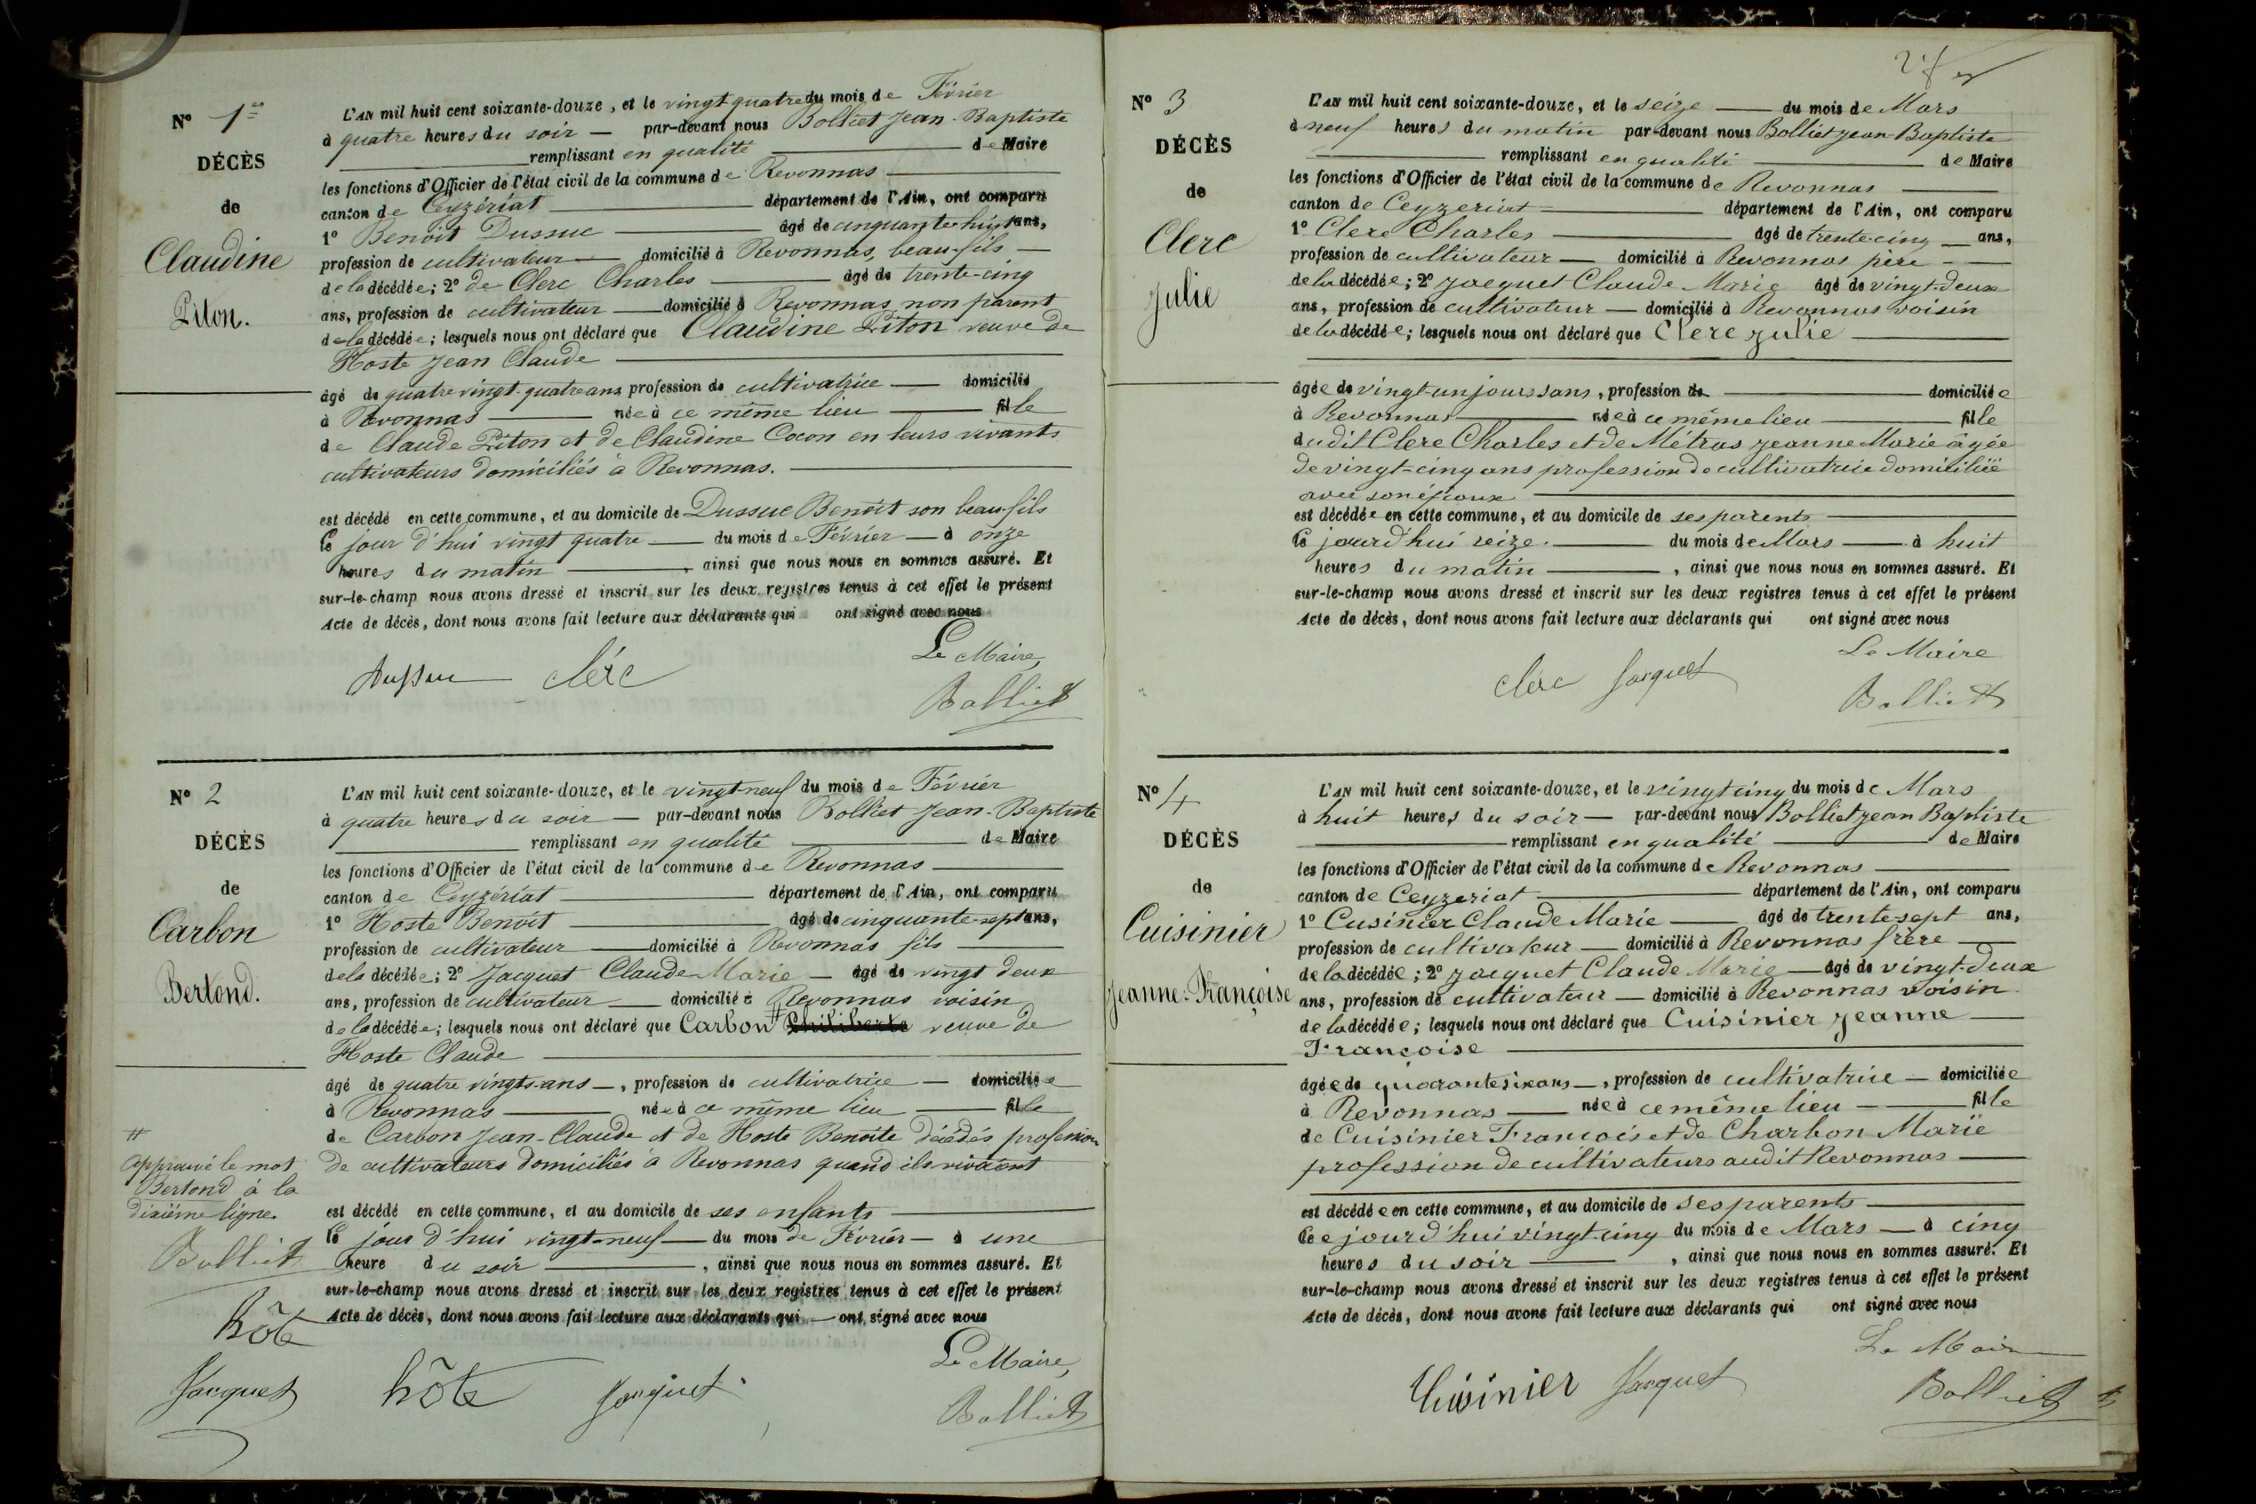 N° 1er
DÉCÈS
de
Claudine
Piton.
L'AN mil huit cent soixante-douze, et le vingt quatre du mois de Février
à quatre heures du soir — par-devant nous Bolliet Jean-Baptiste
remplissant en qualité de Maire
les fonctions d'Officier de l'état civil de la commune de Revonnas
canton de Ceyzériat département de l'Ain, ont comparu
1° Benoit Dussuc âgé de cinquante-huit ans,
profession de cultivateur domicilié à Revonnas, beau-fils —
de la décédée; 2° de Clerc Charles âgé de trente-cinq
ans, profession de cultivateur domicilié à Revonnas non parent
de la décédée; lesquels nous ont déclaré que Claudine Piton veuve de
Hoste Jean Claude
âgé de quatre vingt-quatre ans profession de cultivatrice domicilié
à Revonnas née à ce même lieu fille
de Claude Piton et de Claudine Cocon en leurs vivants
cultivateurs domiciliés à Revonnas.
est décédé en cette commune, et au domicile de Dussuc Benoît son beau-fils
le jour d'hui vingt quatre du mois de Février — à onze
heures du matin, ainsi que nous nous en sommes assuré. Et
sur-le-champ nous avons dressé et inscrit sur les deux registres tenus à cet effet le présent
Acte de décès, dont nous avons fait lecture aux déclarants qui ont signé avec nous
Le Maire,
Dussuc clérc Bolliet
N° 2
DÉCÈS
de
Carbon
Bertond.
L'AN mil huit cent soixante-douze, et le vingt-neuf du mois de Février
à quatre heures du soir — par-devant nous Bolliet Jean-Baptiste
remplissant en qualité de Maire
les fonctions d'Officier de l'état civil de la commune de Revonnas
canton de Ceyzériat département de l'Ain, ont comparu
1° Hoste Benoit âgé de cinquante-sept ans,
profession de cultivateur domicilié à Revonnas fils
de la décédée; 2° Jacquet Claude-Marie — âgé de vingt deux
ans, profession de cultivateur domicilié à Revonnas voisin
de la décédée; lesquels nous ont déclaré que Carbon # Philiberte veuve de
Hoste Claude
âgé de quatre vingts-ans —, profession de cultivatrice — domiciliée
à Revonnas née à ce même lieu fille
de Carbon Jean-Claude et de Hoste Benoîte décédés profession
de cultivateurs domiciliés à Revonnas quand ils vivaient
est décédé en cette commune, et au domicile de ses enfants
le jour d'hui vingt-neuf du mois de Février — à une
heure du soir, ainsi que nous nous en sommes assuré. Et
sur-le-champ nous avons dressé et inscrit sur les deux registres tenus à cet effet le présent
Acte de décès, dont nous avons fait lecture aux déclarants qui — ont signé avec nous
#
Approuvé le mot
Bertond à la
dixième ligne.
Bolliet
hôte
Jacquet
Le Maire,
hôte Jacquet Bolliet
N° 3
DÉCÈS
de
Clerc
Julie
L'AN mil huit cent soixante-douze, et le seize du mois de Mars
à neuf heures du matin par-devant nous Bolliet Jean Baptiste
remplissant en qualité de Maire
les fonctions d'Officier de l'état civil de la commune de Revonnas
canton de Ceyzeriat département de l'Ain, ont comparu
1° Clerc Charles âgé de trente-cinq ans,
profession de cultivateur — domicilié à Revonnas père
de la décédée; 2° Jacquet Claude-Marie âgé de vingt-deux
ans, profession de cultivateur — domicilié à Revonnas voisin
de la décédée; lesquels nous ont déclaré que Clerc Julie
âgée de vingt-un jours sans, profession de domiciliée
à Revonnas née à ce même lieu fille
dudit Clerc Charles et de Métras Jeanne Marie âgée
de vingt-cinq ans profession de cultivatrice domiciliée
avec son époux
est décédée en cette commune, et au domicile de ses parents
le jourd'hui seize. du mois de Mars à huit
heures du matin, ainsi que nous nous en sommes assuré. Et
sur-le-champ nous avons dressé et inscrit sur les deux registres tenus à cet effet le présent
Acte de décès, dont nous avons fait lecture aux déclarants qui ont signé avec nous
Le Maire
clérc Jacquet Bolliet
N° 4
DÉCÈS
de
Cuisinier
Jeanne-Françoise
L'AN mil huit cent soixante-douze, et le vingt cinq du mois de Mars
à huit heures du soir — par-devant nous Bolliet Jean Baptiste
remplissant en qualité de Maire
les fonctions d'Officier de l'état civil de la commune de Revonnas
canton de Ceyzeriat département de l'Ain, ont comparu
1° Cusinier Claude Marie âgé de trente-sept ans,
profession de cultivateur — domicilié à Revonnas frère
de la décédée; 2° Jacquet Claude Marie — âgé de vingt-deux
ans, profession de cultivateur — domicilié à Revonnas voisin
de la décédée; lesquels nous ont déclaré que Cuisinier Jeanne
Françoise
âgée de quarante six ans —, profession de cultivatrice — domiciliée
à Revonnas née à ce même lieu fille
de Cuisinier François et de Charbon Marie
profession de cultivateurs audit Revonnas
est décédée en cette commune, et au domicile de ses parents
le jourd'hui vingt-cinq du mois de Mars — à cinq
heures du soir, ainsi que nous nous en sommes assuré. Et
sur-le-champ nous avons dressé et inscrit sur les deux registres tenus à cet effet le présent
Acte de décès, dont nous avons fait lecture aux déclarants qui ont signé avec nous
Le Maire
Cuisinier Jacquet Bolliet